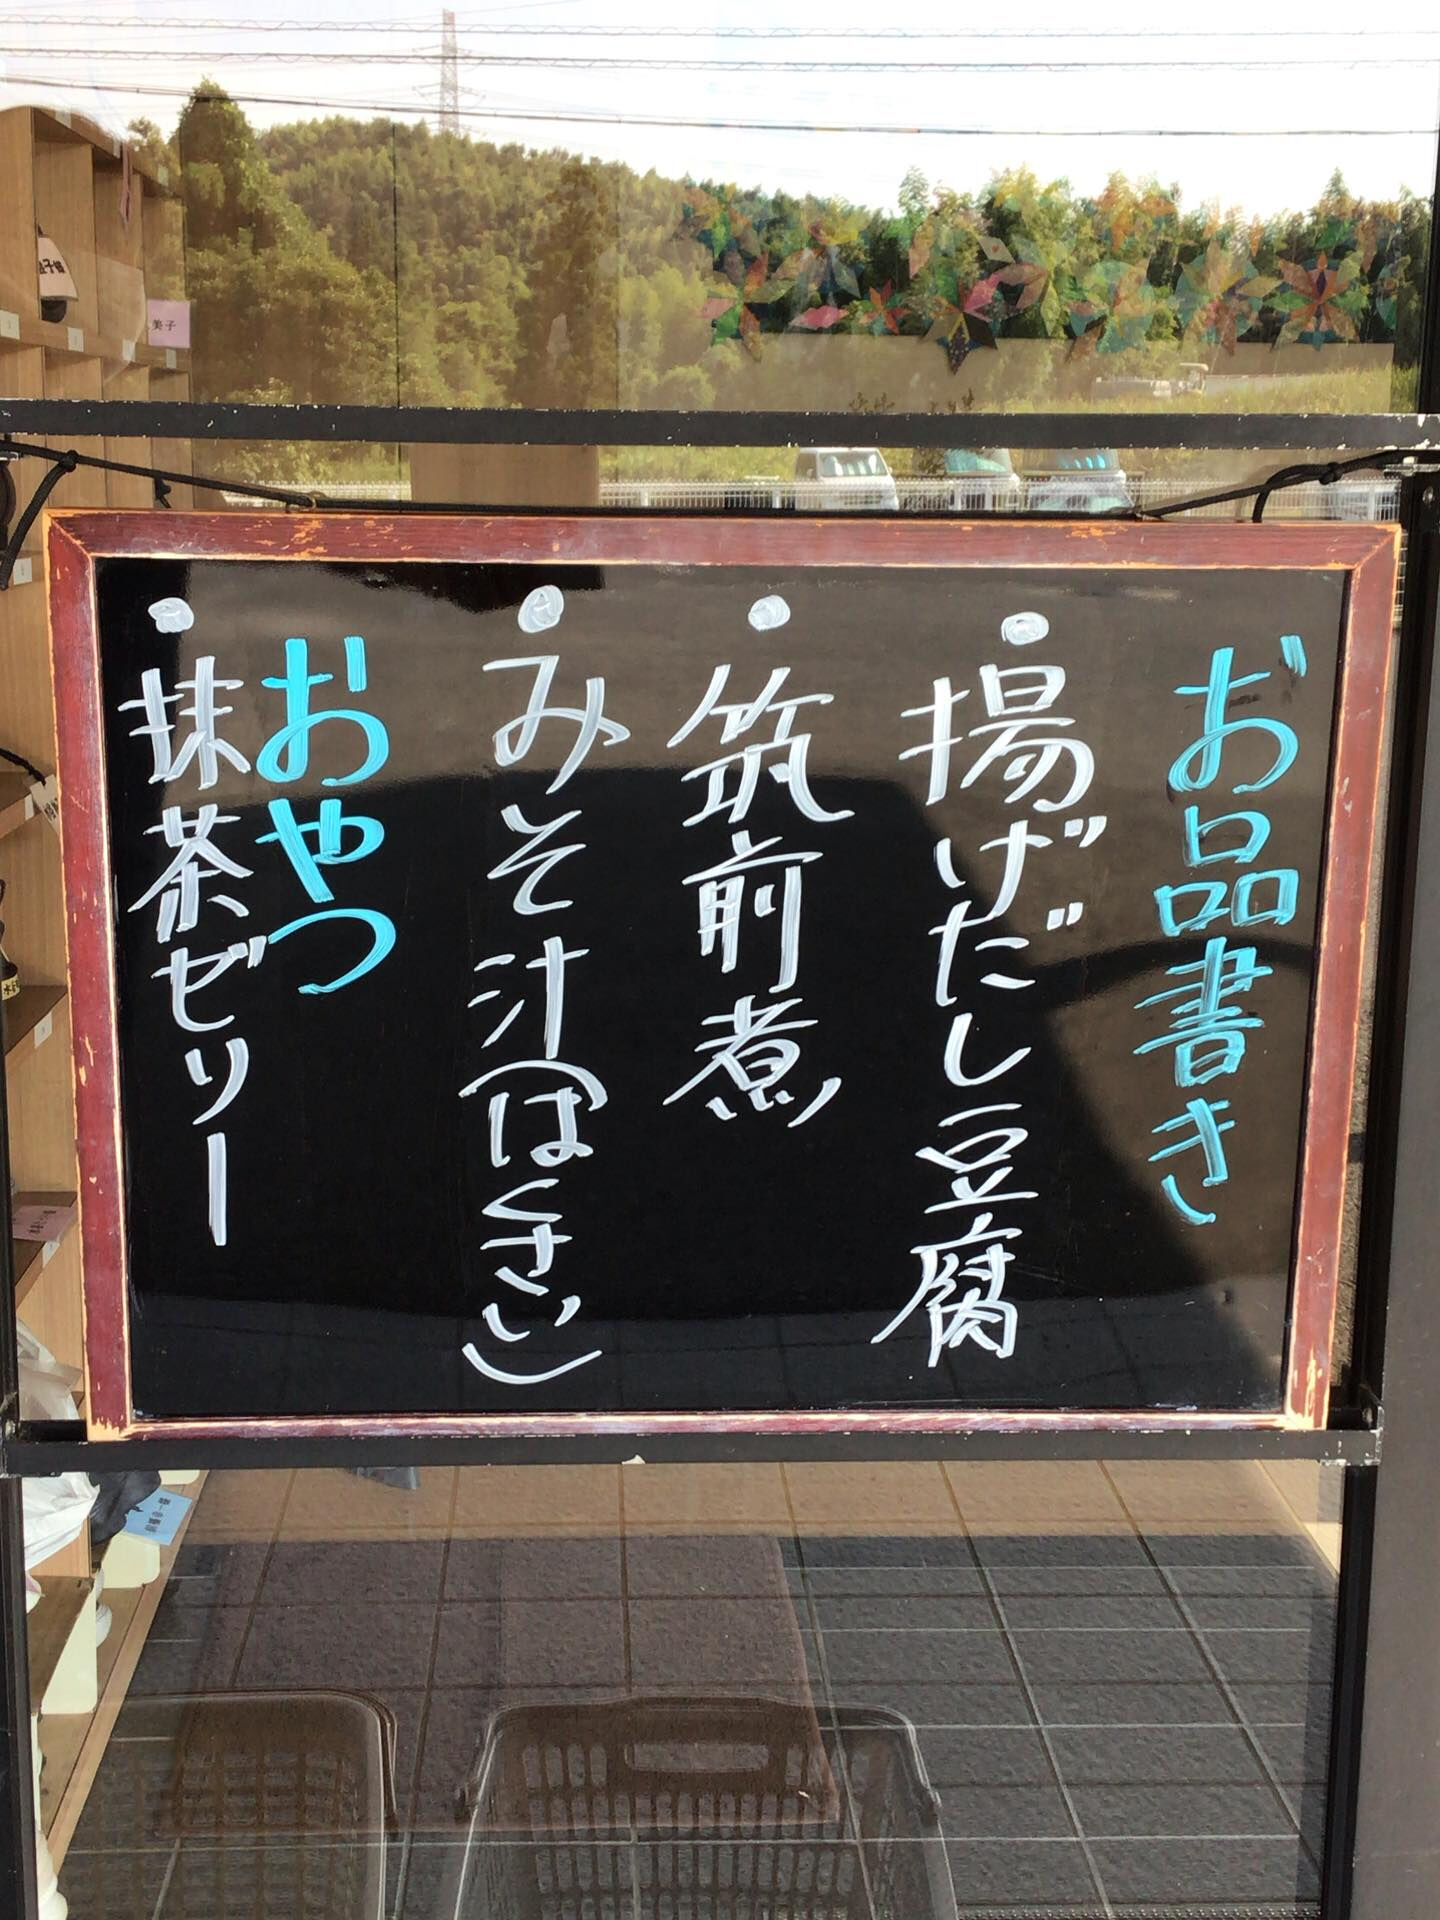 お品書き
揚げだし豆腐
筑前煮
みそ汁(はくさい)
おやつ
抹茶ゼリー
美子